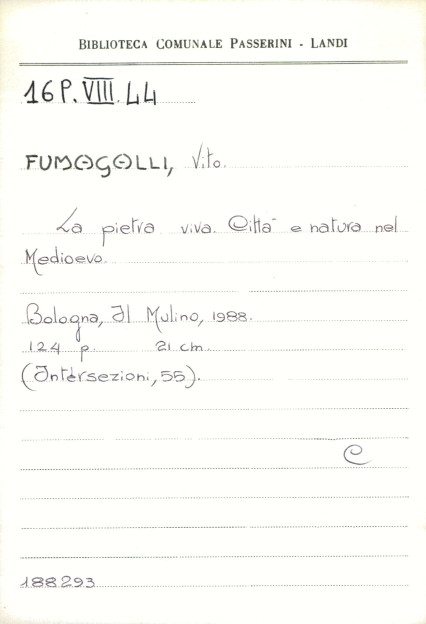 BIBLIOTECA COMUNALE PASSERINI - LANDI
16 P. VIII. 44
FUMOGOLLI, Vito.
La pietra viva. Città e natura nel
Medioevo.
Bologna, Il Mulino, 1988.
124 p. 21 cm.
(Intersezioni, 55).
C
188293